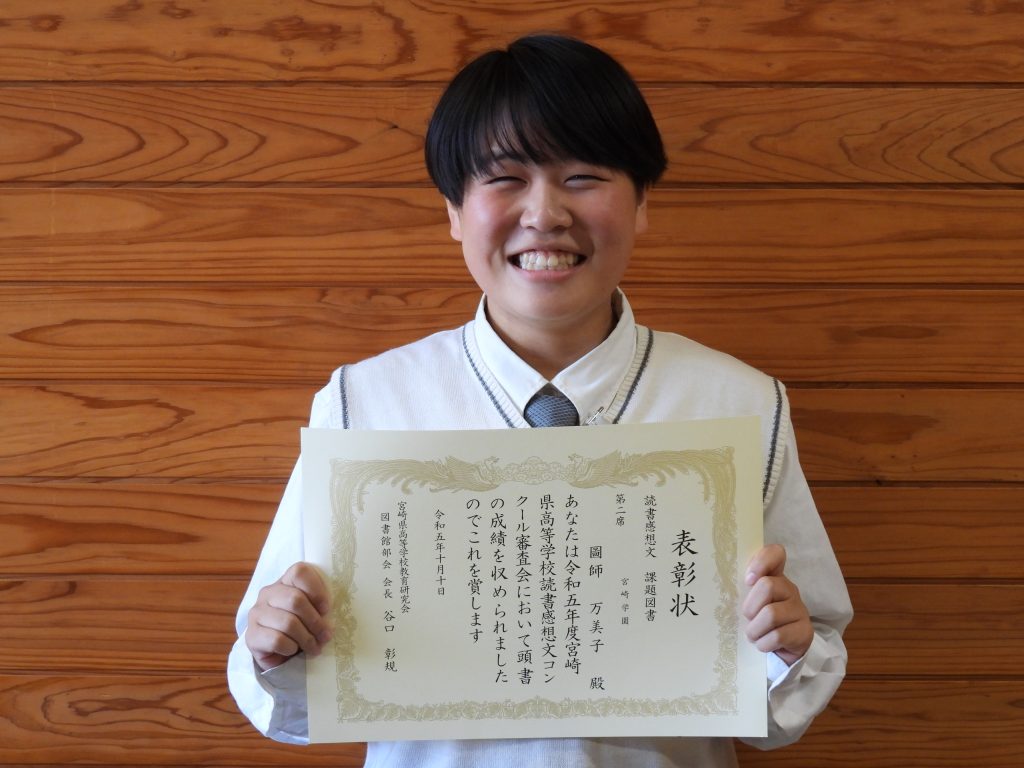 表彰状
読書感想文 課題図書
第二席
宮崎学園
圖師 万美子 殿
あなたは令和五年度宮崎
県高等学校読書感想文コン
クール審査会において頭書
の成績を収められました
のでこれを賞します
令和五年十月十日
宮崎県高等学校教育研究会
図書館部会 会長 谷口 彰規